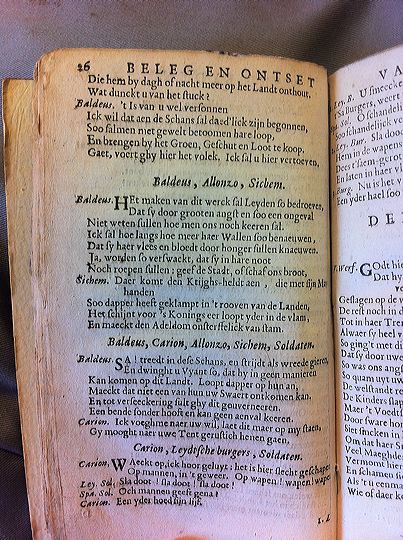 26 BELEG EN ONTSET
Die hem by dagh of nacht meer op het Landt onthout.
Wat dunckt u van het stuck?
Baldeus. 't Is van u wel versonnen
Ick wil dat aen de Schans sal daed'lick zijn begonnen,
Soo sullen met gewelt betoomen hare loop,
En brengen by het Groen, Geschut en Loot te koop.
Gaet, voert ghy hier het volck. Ick sal u hier vertoeven,
Baldeus, Allonzo, Sichem.
Baldeus. HEt maken van dit werck sal Leyden so bedroeven,
Dat sy door grooten angst en soo een ongeval
Niet weten sullen hoe men ons noch keeren sal.
Ick sal hoe langs hoe meer haer Wallen soo benaeuwen,
Dat sy haer vlees en bloedt door honger sullen knaeuwen.
Ja, worden so verswackt, dat sy in hare noot
Noch roepen sullen: geef de Stadt, of schaf ons broot,
Sichem. Daer komt den Krijghs-heldt aen, die met sijn
handen
Soo dapper heeft geklampt in 't rooven van de Landen,
Het schijnt voor 's Konings eer loopt yder in de vlam,
En maeckt den Adeldom onsterffelick van stam.
Baldeus, Carion, Allonzo, Sichem, Soldaten.
Baldeus. SA! treedt in dese Schans, en strijdt als wreede gieren,
En dwinght u Vyant so, dat hy in geen manieren
Kan komen op dit Landt. Loopt dapper op hun an,
Maeckt dat niet een van hun uw Swaert ontkomen kan.
En tot verseeckering sult ghy dit gouverneeren.
Een bende sonder hooft en kan geen aenval keeren.
Carion. Ick voeghme naer uw wil, laet dit maer op my staen,
Gy mooght naer uwe Tent gerustlich henen gaen.
Carion, Leydtsche burgers, Soldaten.
Carion. WAeckt op, ick hoor geluyt: het is hier slecht geschapen
Op mannen, in 't geweer. Op wapen! wapen! wapen!
Ley. Sol. Sla doot! sla doot! sla doot!
Spa. Sol. Och mannen geeft gena?
Carion. Een yder hoed sijn lijf.
VA
Ley. B.
't Sa Burgers, weert
Spa. Sol. O schandelij
Soo schandelick ver
Ley. Bur. Sla doot
Hem in de wapens
Dees t'saem-gerot
En laten in haer
Burg. Nu is het v
Een yder hael soo
DE
T. Werf. GOdt hie
Dat hy
Geslagen op de w
De rest noch in d
Tot in haer Tren
Alwaer sy heel v
So ging't met di
Dat sy door uwe
So was ons angst
De welstandt
De Kinders slap
Maer 't Voedts
Door sware hon
Siet sincken in
Om dat haer S
Veel Maeghde
Vermomt hier
En schamen sic
Als 't u eenma
Wie of daer k